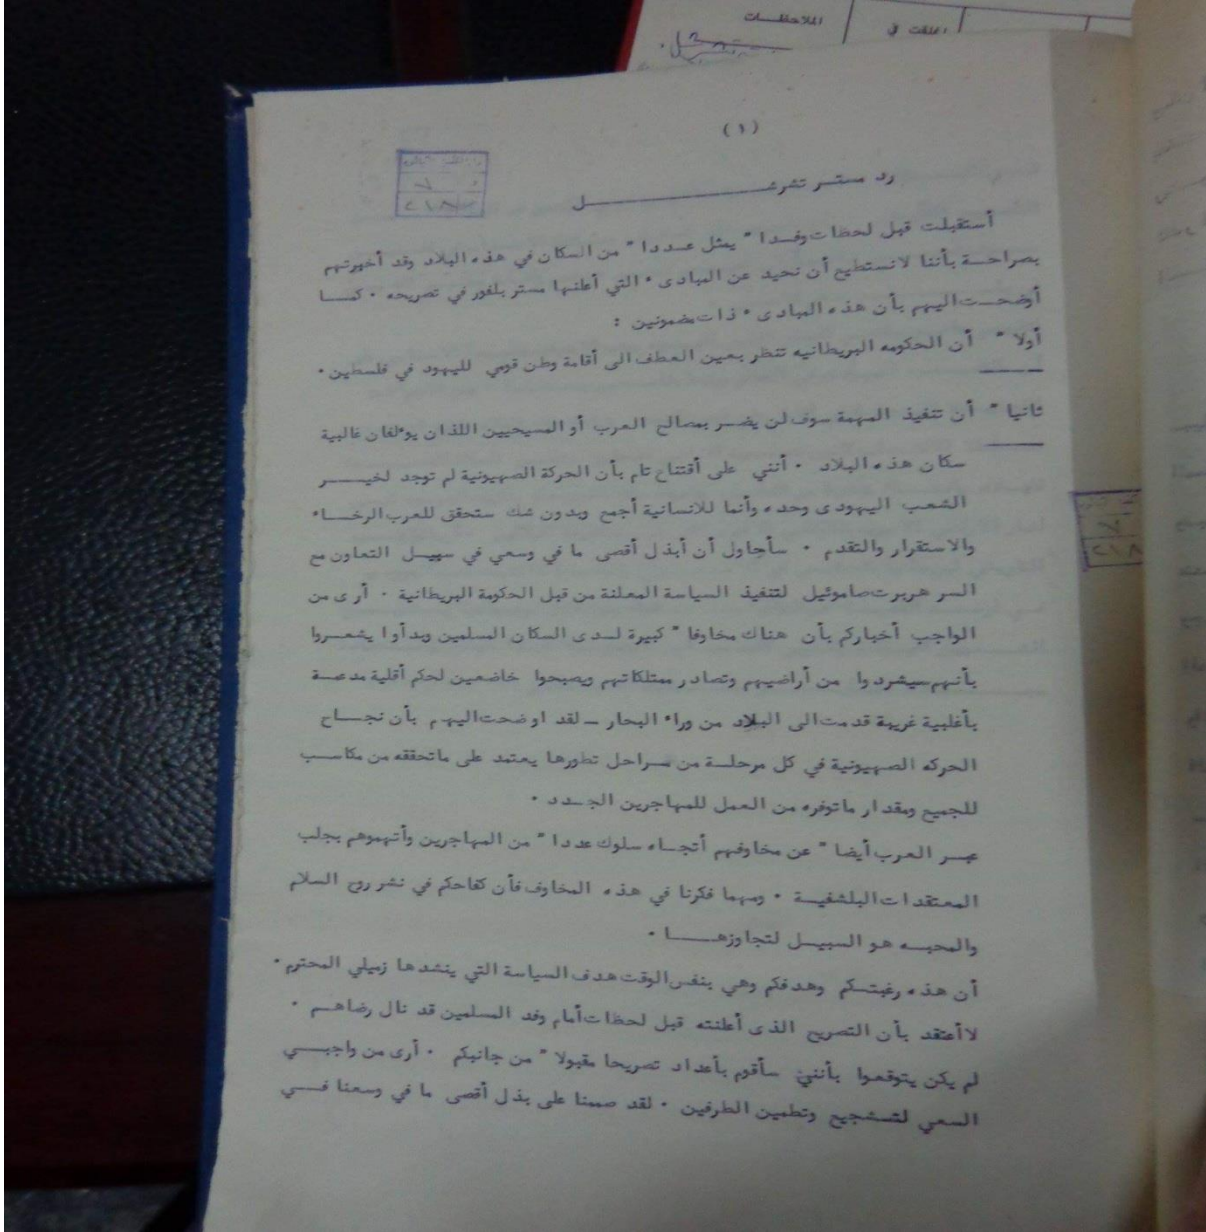 الملاحظات
(١)
رد مستر تشرشل
أستقبلت قبل لحظات وفدا " يمثل عددا " من السكان في هذه البلاد وقد أخبرتهم
بصراحة بأننا لانستطيع أن نحيد عن المبادىء التي أعلنها مستر بلفور في تصريحه ٠ كما
أوضحت اليهم بأن هذه المبادىء ذات مضمونين :
أولا " أن الحكومه البريطانيه تنظر بعين العطف الى أقامة وطن قومي لليهود في فلسطين ٠
ثانيا " أن تنفيذ المهمة سوف لن يضر بمصالح العرب أو المسيحيين اللذان يؤلفان غالبية
سكان هذه البلاد ٠ أنني على أقتناع تام بأن الحركة الصهيونية لم توجد لخير
الشعب اليهودى وحده وأنما للانسانية أجمع وبدون شك ستحقق للعرب الرخاء
والاستقرار والتقدم ٠ سأحاول أن أبذل أقصى ما في وسعي في سبيل التعاون مع
السر هربرت صاموئيل لتنفيذ السياسة المعلنة من قبل الحكومة البريطانية ٠ أرى من
الواجب أخباركم بأن هناك مخاوفا " كبيرة لدى السكان المسلمين وبدأوا يشعروا
بأنهم سيشردوا من أراضيهم وتصادر ممتلكاتهم ويصبحوا خاضعين لحكم أقلية مدعمة
بأغلبية غريبة قدمت الى البلاد من وراء البحار ــ لقد اوضحت اليهم بأن نجاح
الحركه الصهيونية في كل مرحلة من مراحل تطورها يعتمد على ماتحققه من مكاسب
للجميع ومقدار ماتوفره من العمل للمهاجرين الجدد ٠
عبر العرب أيضا " عن مخاوفهم أتجاه سلوك عددا " من المهاجرين وأتهموهم بجلب
المعتقدات البلشفية ٠ ومهما فكرنا في هذه المخاوف فأن كفاحكم في نشر روح السلام
والمحبه هو السبيل لتجاوزها ٠
أن هذه رغبتكم وهدفكم وهي بنفس الوقت هدف السياسة التي ينشدها زميلي المحترم ٠
لاأعتقد بأن التصريح الذى أعلنته قبل لحظات أمام وفد المسلمين قد نال رضاهم ٠
لم يكن يتوقعوا بأنني سأقوم بأعداد تصريحا مقبولا " من جانبكم ٠ أرى من واجبي
السعي لتشجيع وتطمين الطرفين ٠ لقد صممنا على بذل أقصى ما في وسعنا في